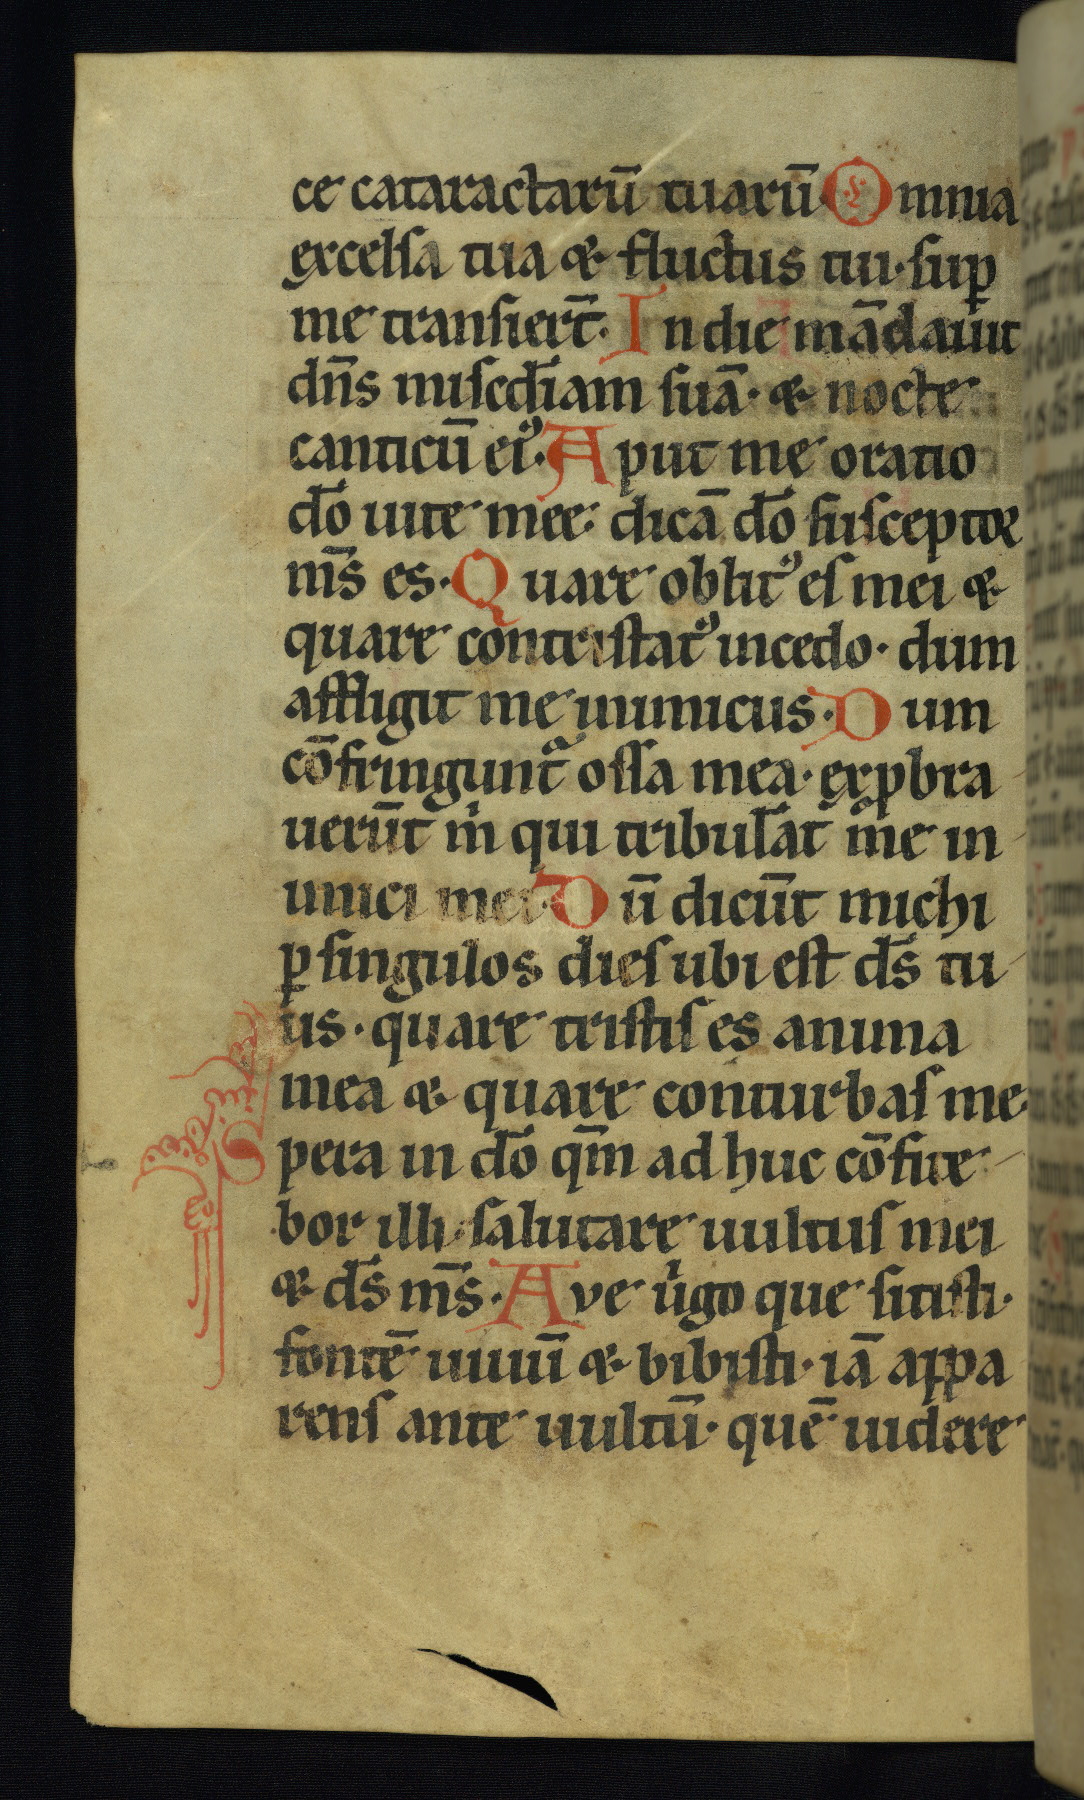 ce cataractarū tuarū. Omnia
excelsa tua & fluctus tui. suꝑ
me transier̄t. In die mādauit
dn̄s misc̄diam suā. & nocte
canticū eiꝰ. Aput me oratio
dō uite mee. dicā dō susceptor
ms̄ es. Quare oblitꝰ es mei &
quare contristatꝰ incedo. dum
affligit me inimicus. Dum
cōfringunt᷑ ossa mea. exꝓbra
uerūt m̄ qui tribulāt me in
imici mei. Dū dicūt michi
ꝑ singulos dies ubi est ds̄ tu
us. quare tristis es anima
mea & quare conturbas me
Spera in dō qm̄ ad huc cōfite
bor illi. salutare uultus mei
& ds̄ ms̄. Ave uͥgo que sitisti.
fontē uiuū & bibisti. iā appa
rens ante uultū. quē uidere